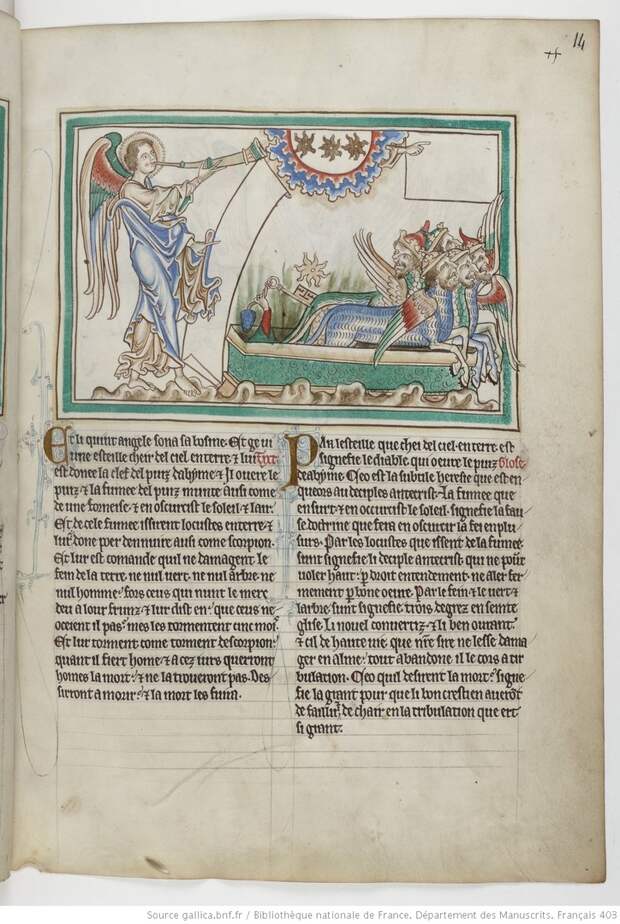 14
Et li quint angele sona sa bosine. Et ge vi
une esteille cheir del ciel en terre & lui Tixt
est donee la clef del puiz dabysme & Il overe le
puiz & la fumee del puiz munte ausi come
de une forneise & en oscurcist le soleil & lair.
Et de cele fumee issirent locustes en terre &
lur done poer de nuire ausi come scorpion.
Et lur est comande quil ne damagent le
fein de la terre ne nul vert ne nul arbre ne
nul home fors ceus qui nunt le merc
deu a lour frunz & lur dist en que ceus ne
ocient il pas mes les tormentent une moi.
Et lur torment come torment descorpion
quant il fiert home & a cez iurs querront
homes la mort & ne la troveront pas. Des
sirront a morir & la mort les fuira.
Par lesteille que chei del ciel en terre est
signefie le diable qui oevre le puiz Glose
de abyme. Ceo est la subtile heresie que est en
queors au deciples antecrist. La fumee que
en surt & en occurcist le soleil signefie la fau
se doctrine que fera en oscurcir la fei en plu
surs. Par les locustes que issent de la fumee
sunt signefie li deciple antecrist qui ne poit
voler haut p droit entendement ne aler fer
mement p bone oevre. Par le fein & le vert &
larbre sunt signefie trois degrez en seinte
glise. Li novel convertiz & li ben ovrant
& cil de haute vie que nre sire ne lesse dama
ger en alme tout abandone il le cors a tir
bulation. Ceo quil desirent la mort signe
fie la grant pour que li bon crestien averont
de faillir de char en la tribulation que ert
si grant.
Source gallica.bnf.fr / Bibliothèque nationale de France. Département des Manuscrits. Français 403